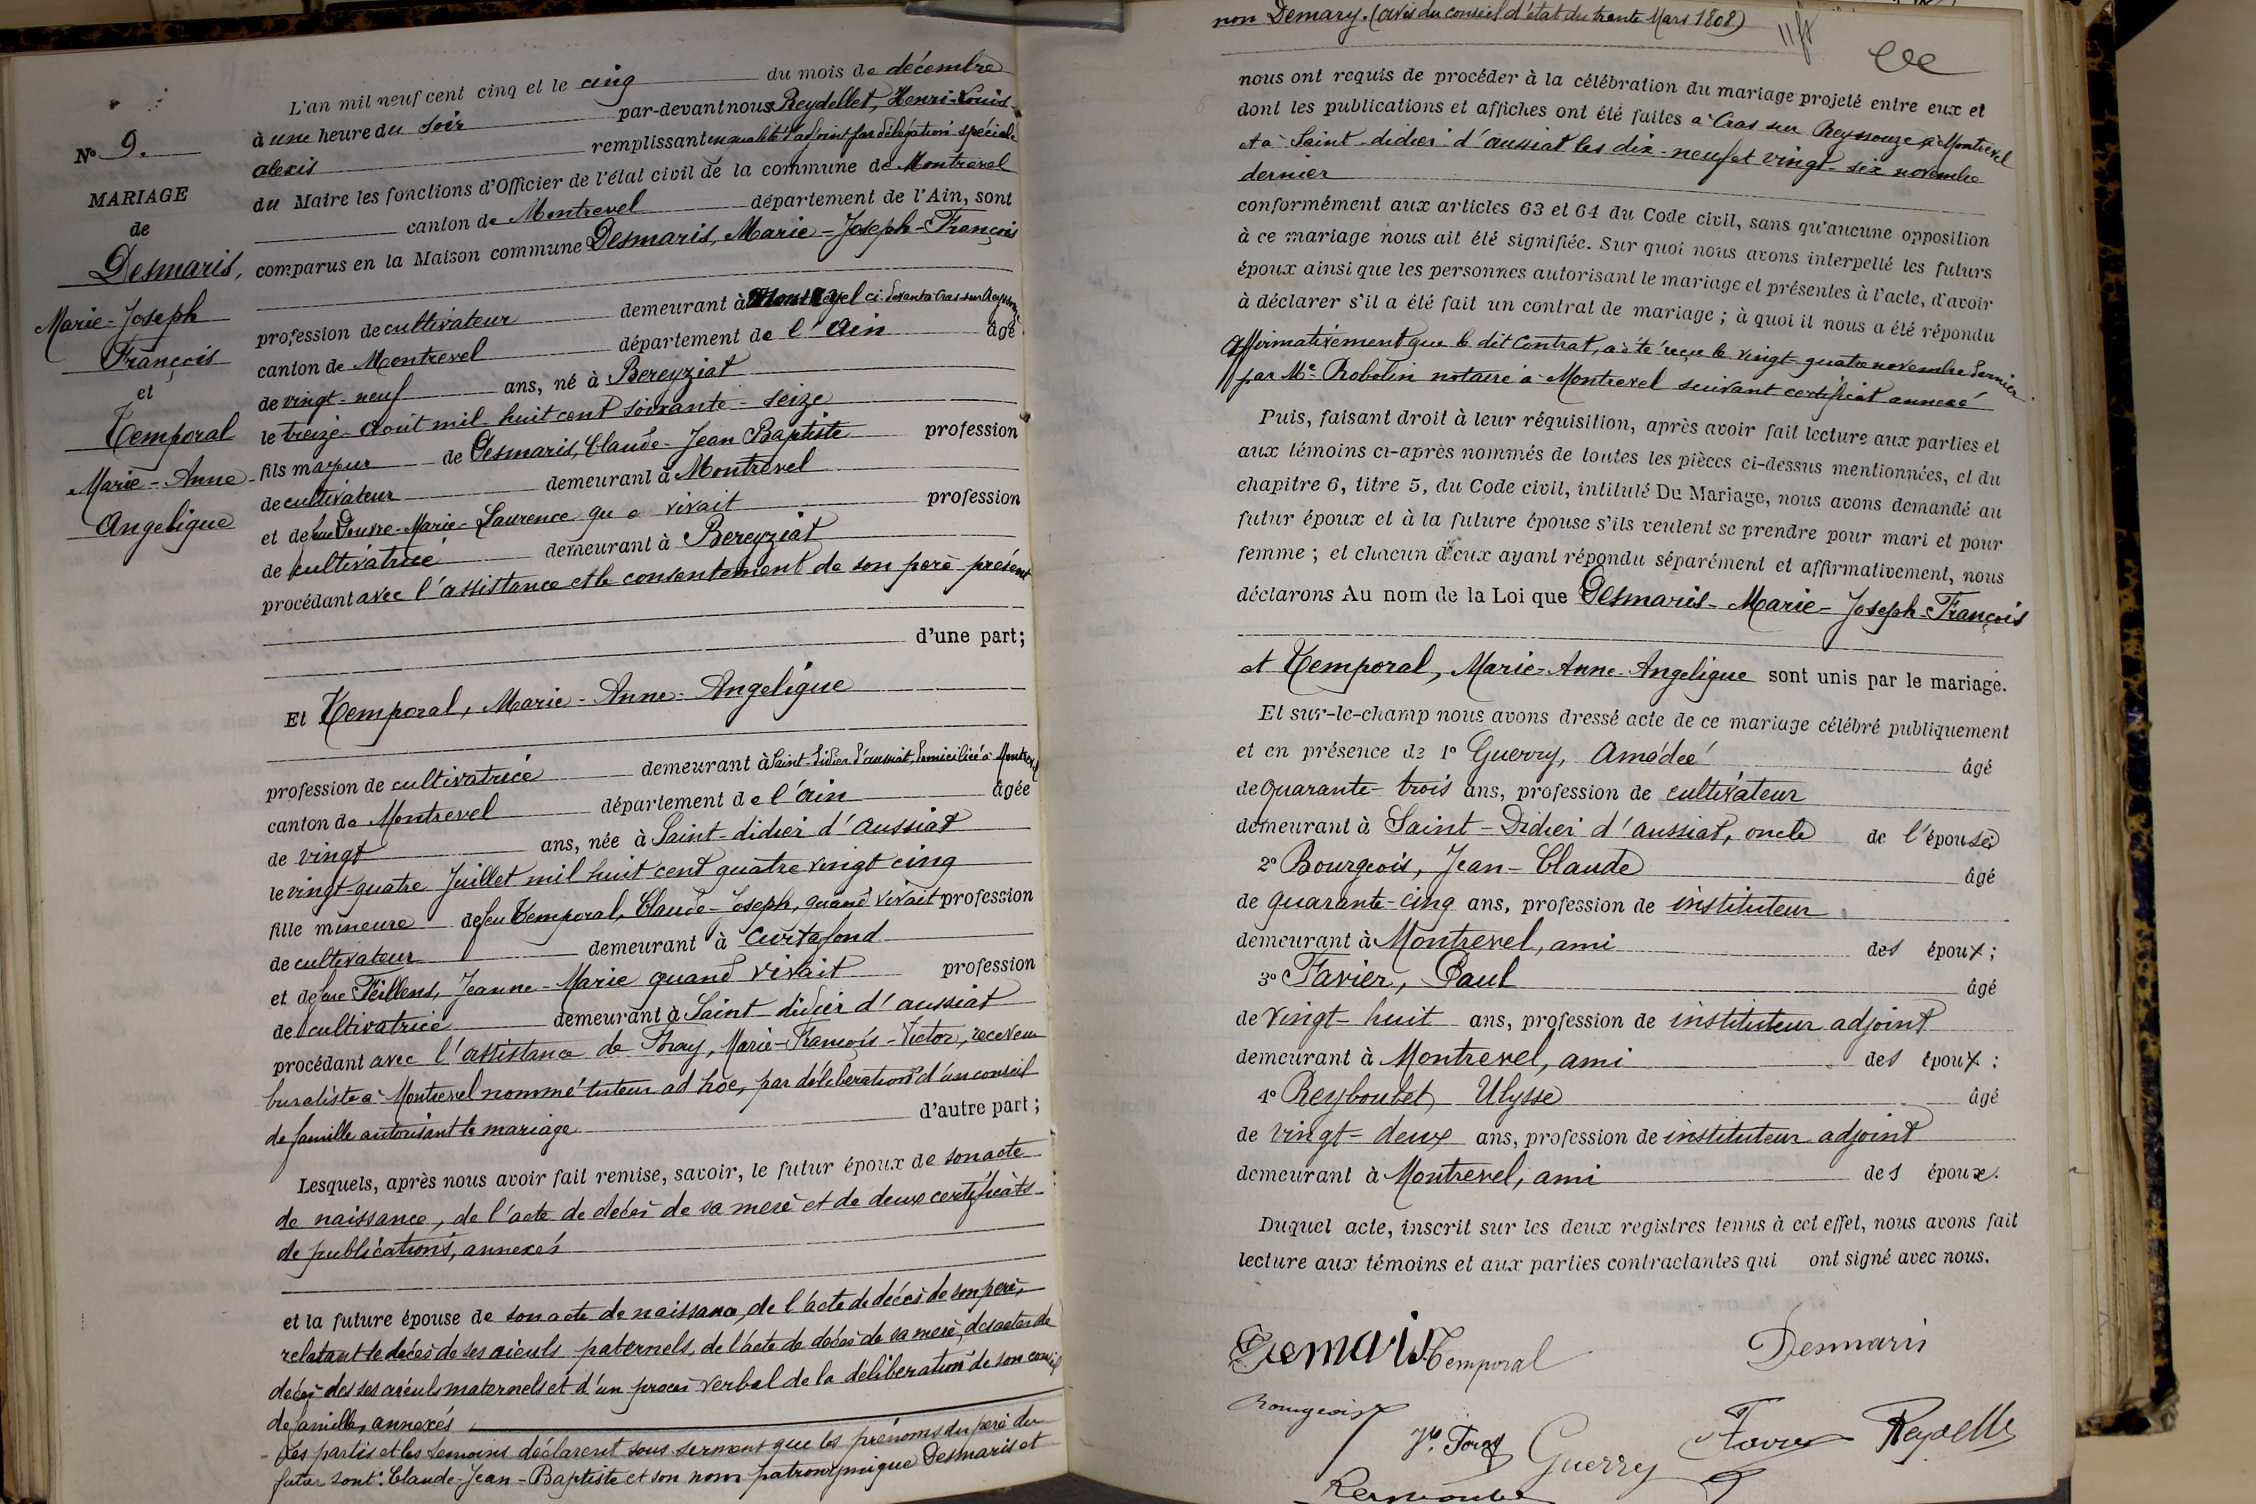 N° 9.
MARIAGE
de
Desmaris,
Marie-Joseph
François
et
Temporal
Marie-Anne-
Angelique
L'an mil neuf cent cinq et le cinq du mois de décembre
à une heure du soir par-devant nous Reydellet, Henri-Louis-
alexis remplissant en qualité d'adjoint par délégation spéciale
du Maire les fonctions d'Officier de l'état civil de la commune de Montrevel
canton de Montrevel département de l'Ain, sont
comparus en la Maison commune Desmaris, Marie-Joseph-François
profession de cultivateur demeurant à Montrevel ci-devant à Cras sur Reyssouze
canton de Montrevel département de l'ain âgé
de vingt-neuf ans, né à Bereyziat
le treize-Aout mil-huit cent soixante-seize
fils majeur de Desmaris, Claude-Jean Baptiste profession
de cultivateur demeurant à Montrevel
et de feue Marie-Laurence qu vivait profession
de cultivatrice demeurant à Bereyziat
procédant avec l'assistance et le consentement de son père présent
d'une part;
Et Temporal, Marie-Anne-Angelique
profession de cultivatrice demeurant à Saint-didier d'aussiat, domiciliée à Montrevel
canton de Montrevel département de l'ain âgée
de vingt ans, née à Saint-didier d'aussiat
le vingt-quatre Juillet mil huit cent quatre vingt cinq
fille mineure de feu Temporal, Claude-Joseph, quand vivait profession
de cultivateur demeurant à Curtafond
et de feue Feillens, Jeanne-Marie quand vivait profession
de cultivatrice demeurant à Saint-didier d'aussiat
procédant avec l'assistance de Foray, Marie-François-Victor, receveur
buraliste à Montrevel nommé tuteur ad hoc, par délibération d'un conseil
de famille autorisant le mariage d'autre part;
Lesquels, après nous avoir fait remise, savoir, le futur époux de son acte
de naissance, de l'acte de décès de sa mere et de deux certificats
de publications, annexés
et la future épouse de son acte de naissance, de l'acte de décès de son père,
relatant le décès de ses aieuls paternels, de l'acte de décès de sa mère, des actes de
décès des ses aieuls maternels et d'un procès verbal de la délibération de son conseil
de famille, annexés
Les parties et les témoins déclarent sous serment que les prénoms du père du
futur sont: Claude-Jean-Baptiste et son nom patronymique Desmaris et
non Demary. (avis du conseil d'état du trente Mars 1808)
nous ont requis de procéder à la célébration du mariage projeté entre eux et
dont les publications et affiches ont été faites à Cras sur Reyssouze à Montrevel
et à Saint-didier d'aussiat les dix-neuf et vingt-six novembre
dernier
conformément aux articles 63 et 64 du Code civil, sans qu'aucune opposition
à ce mariage nous ait été signifiée. Sur quoi nous avons interpellé les futurs
époux ainsi que les personnes autorisant le mariage et présentes à l'acte, d'avoir
à déclarer s'il a été fait un contrat de mariage; à quoi il nous a été répondu
Affirmativement que le dit contrat, a été reçu le vingt-quatre novembre dernier
par Me Robelin notaire à Montrevel suivant certificat annexé
Puis, faisant droit à leur réquisition, après avoir fait lecture aux parties et
aux témoins ci-après nommés de toutes les pièces ci-dessus mentionnées, et du
chapitre 6, titre 5, du Code civil, intitulé Du Mariage, nous avons demandé au
futur époux et à la future épouse s'ils veulent se prendre pour mari et pour
femme; et chacun d'eux ayant répondu séparément et affirmativement, nous
déclarons Au nom de la Loi que Desmaris-Marie-Joseph-François
et Temporal, Marie-Anne-Angelique sont unis par le mariage.
Et sur-le-champ nous avons dressé acte de ce mariage célébré publiquement
et en présence de 1° Guerry, Amédeé âgé
de quarante-trois ans, profession de cultivateur
demeurant à Saint-Didier d'aussiat, oncle de l'épouse;
2° Bourgeois, Jean-Claude âgé
de quarante-cinq ans, profession de instituteur
demeurant à Montrevel, ami des époux;
3° Favier, Paul âgé
de vingt-huit ans, profession de instituteur adjoint
demeurant à Montrevel, ami des époux;
4° Reyboubet, Ulysse âgé
de vingt-deux ans, profession de instituteur adjoint
demeurant à Montrevel, ami des époux.
Duquel acte, inscrit sur les deux registres tenus à cet effet, nous avons fait
lecture aux témoins et aux parties contractantes qui ont signé avec nous.
Demaris Temporal Desmaris
Bourgeois Foray Guerry Favier Reydellet